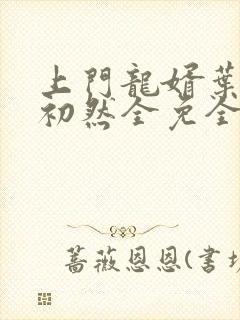 上門龍婿葉
初然全免全
蔷薇恩恩(書坊